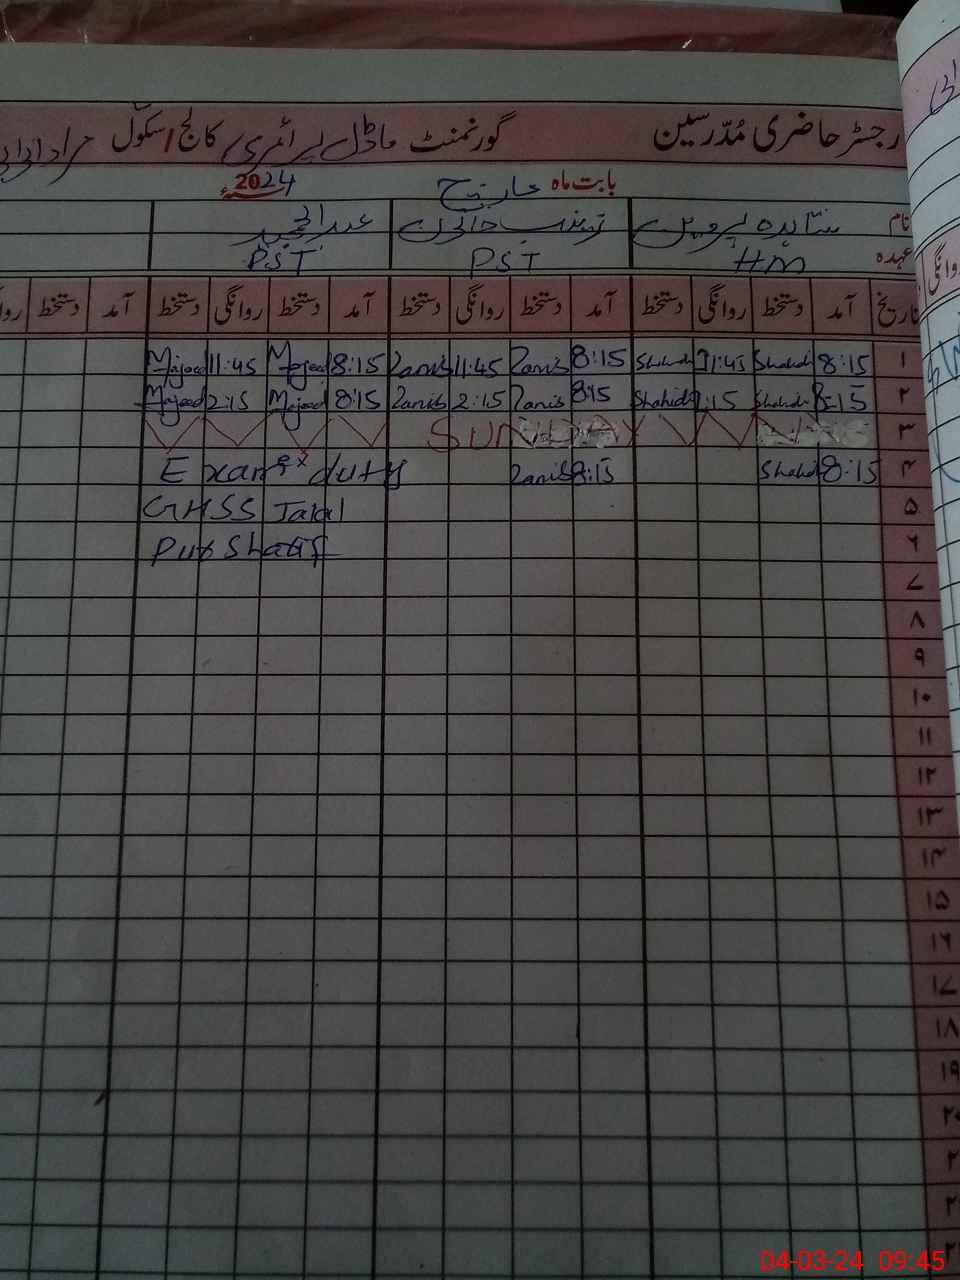 رجسٹر حاضری مُدّرسین گورنمنٹ ماڈل پرائمری کالج/سکول
بابت ماہ مارچ 2024ء
نام شاہدہ پروین زینب خاتون عبدالمجید
عہدہ HM PST PST
تاریخ آمد دستخط روانگی دستخط آمد دستخط روانگی دستخط آمد دستخط روانگی دستخط آمد دستخط
۱ 8:15 Shahida 11:45 Shahida 8:15 Zanib 11:45 Zanib 8:15 Majeed 11:45 Majeed
۲ 8:15 Shahida 2:15 Shahida 8:15 Zanib 2:15 Zanib 8:15 Majeed 2:15 Majeed
۳ SUNDAY
۴ 8:15 Shahid 8:15 Zanib Exam duty
۵ GHSS Jalal
۶ Pur Sharif
۷
۸
۹
۱۰
۱۱
۱۲
۱۳
۱۴
۱۵
۱۶
۱۷
۱۸
۱۹
۲۰
04-03-24 09:45